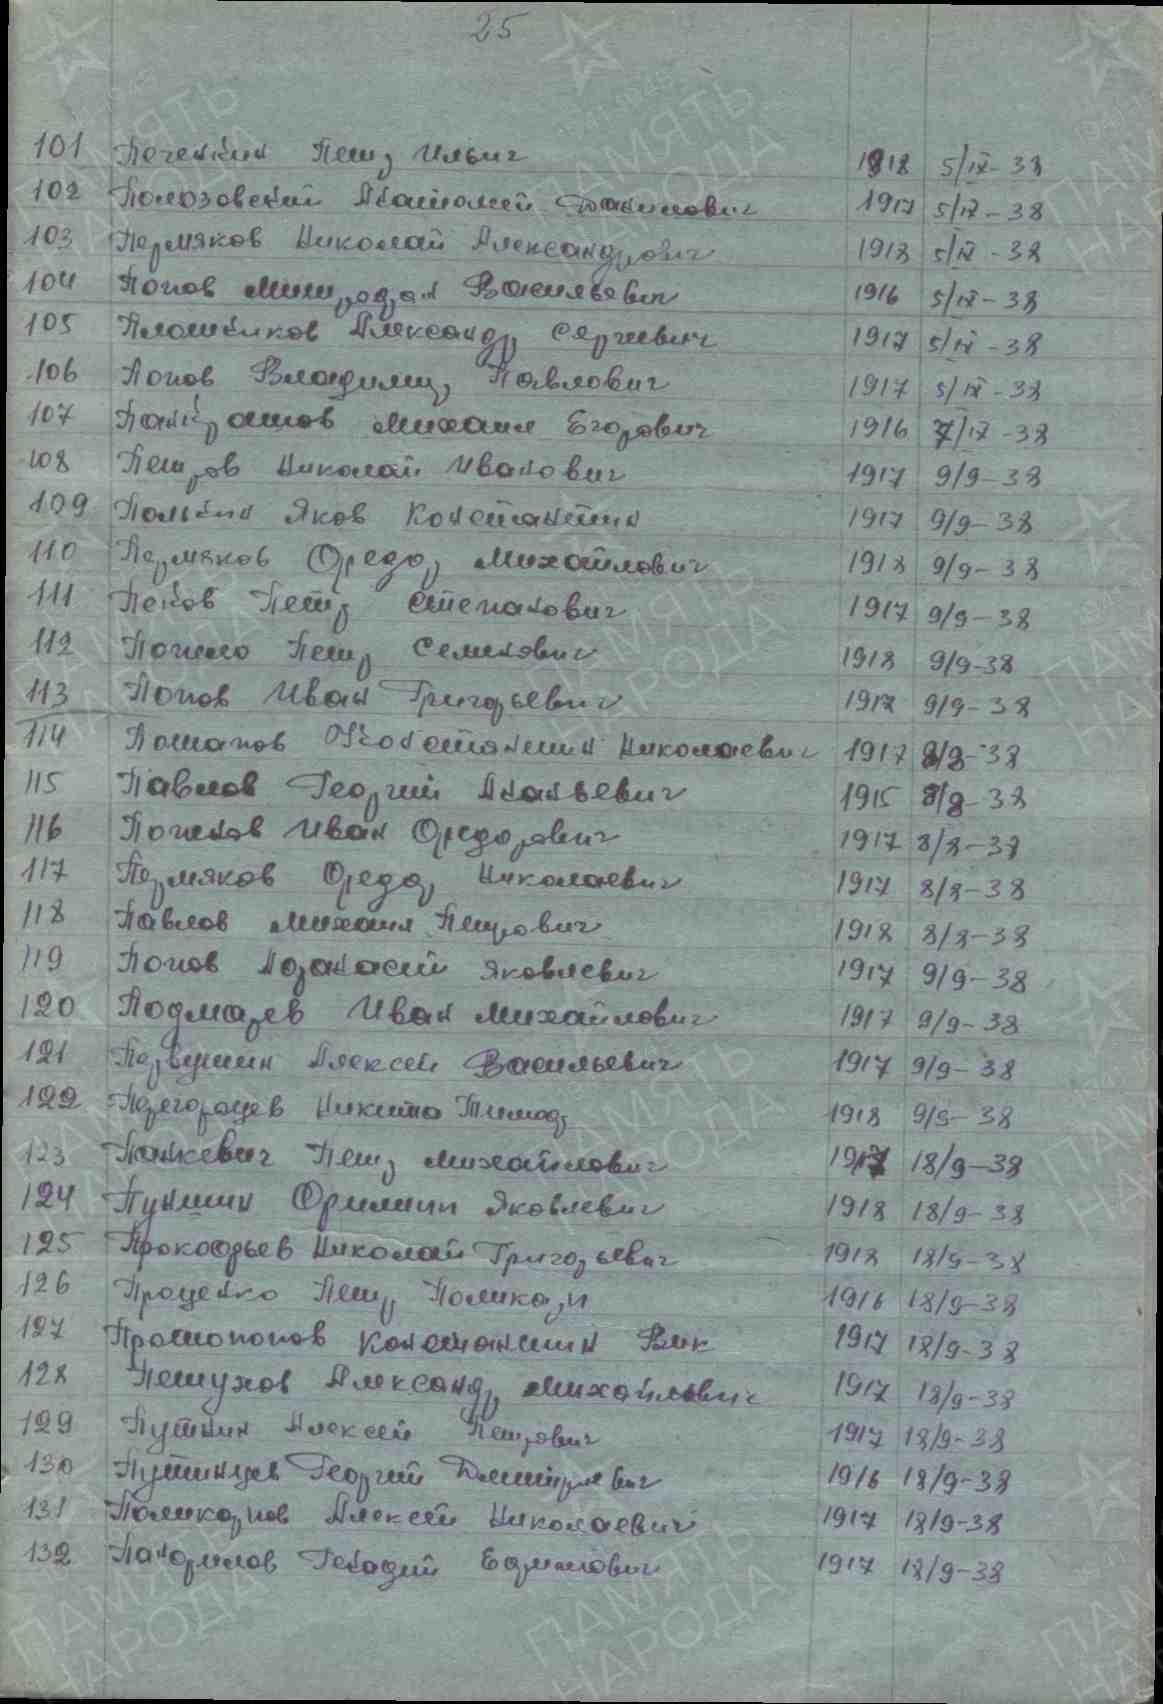 25
101 Печенкин Петр Ильич 1918 5/IX-38
102 Полозовский Анатолий Данилович 1917 5/IX-38
103 Пермяков Николай Александрович 1918 5/IX-38
104 Попов Митрофан Васильевич 1916 5/IX-38
105 Плотников Александр Сергиевич 1917 5/IX-38
106 Попов Владимир Павлович 1917 5/IX-38
107 Панкратов Михаил Егорович 1916 7/IX-38
108 Петров Николай Иванович 1917 9/9-38
109 Полькин Яков Константин 1917 9/9-38
110 Пермяков Федор Михайлович 1918 9/9-38
111 Пеков Петр Степанович 1917 9/9-38
112 Петр Семенович 1918 9/9-38
113 Попов Иван Григорьевич 1917 9/9-38
114 Потапов Константин Николаевич 1917 8/8-38
115 Павлов Георгий Ананьевич 1915 8/8-38
116 Иван Федорович 1917 8/8-38
117 Пермяков Федор Николаевич 1917 8/8-38
118 Павлов Михаил Петрович 1918 8/8-38
119 Попов Яковлевич 1917 9/9-38
120 Подмарев Иван Михайлович 1917 9/9-38
121 Первушин Алексей Васильевич 1917 9/9-38
122 Никита Тимоф 1918 9/9-38
123 Панкевич Петр Михайлович 1917 18/9-38
124 Филипп Яковлевич 1918 18/9-38
125 Прокофьев Николай Григорьевич 1918 18/9-38
126 Проценко Петр Поликарп 1916 18/9-38
127 Протопопов Константин Вик 1917 18/9-38
128 Петухов Александр Михайлович 1917 18/9-38
129 Путнин Алексей Петрович 1917 18/9-38
130 Путинцев Георгий Дмитриевич 1916 18/9-38
131 Поликарпов Алексей Николаевич 1917 18/9-38
132 Панфилов Генадий Ефимович 1917 18/9-38
ПАМЯТЬ
НАРОДА